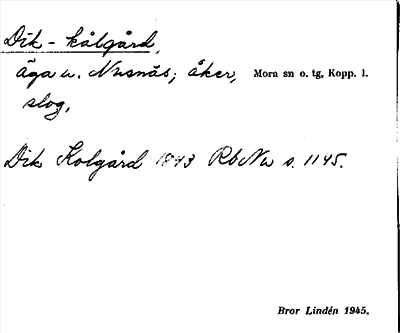 Dik-kålgård,
äga u. Nusnäs; åker, Mora sn o. tg, Kopp. l.
slog.
Dik Kolgård 1843 RbNu s. 1145.
Bror Lindén 1945.